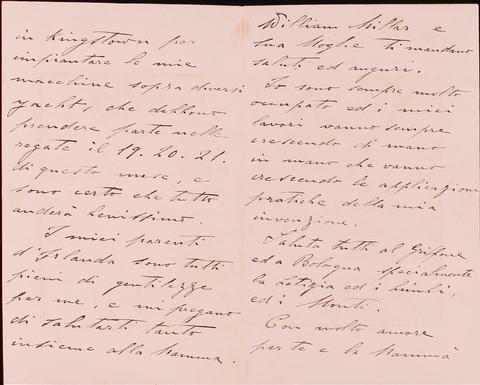 in Kingstown per
impiantare le mie
macchine sopra diversi
yachts, che debbono
prendere parte nelle
regate il 19. 20. 21.
di questo mese, e
sono certo che tutto
anderà benissimo.
I miei parenti
d'Irlanda sono tutti
pieni di gentilezze
per me, e mi pregano
di salutarti tanto
insieme alla Mamma.
William Millar e
sua Moglie ti mandano
saluti ed auguri.
Io sono sempre molto
occupato ed i miei
lavori vanno sempre
crescendo di mano
in mano che vanno
crescendo le applicazione
pratiche della mia
invenzione.
Saluta tutti al Griffone
ed a Bologna specialmente
la Letizia ed i bimbi,
ed i Monti.
Con molto amore
per te e la Mammà